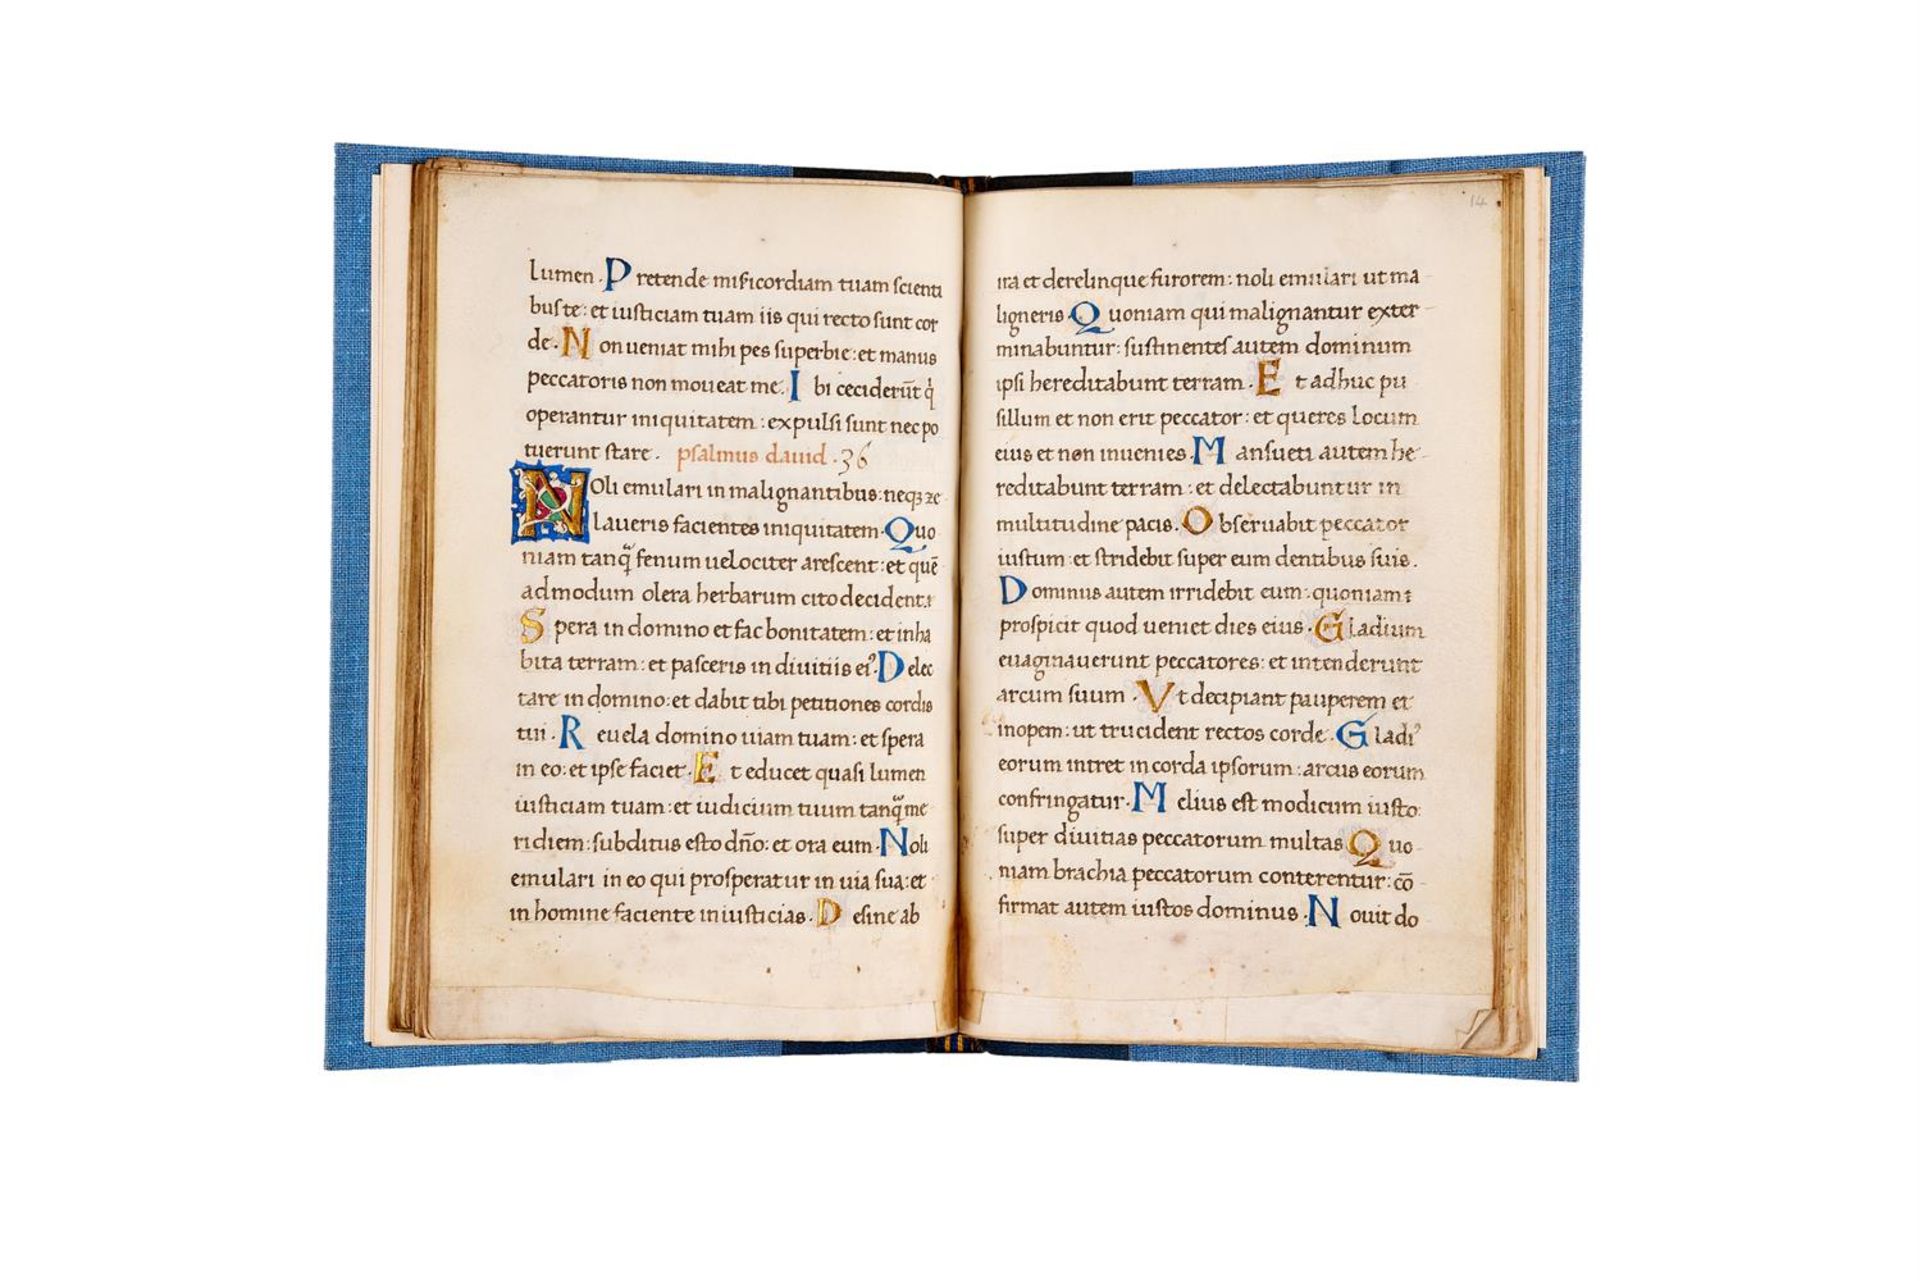 lumen. Pretende mis̄icordiam tuam scienti
bus te: et iusticiam tuam iis qui recto sunt cor
de. Non ueniat mihi pes superbie: et manus
peccatoris non moueat me. Ibi ceciderūt q̇
operantur iniquitatem: expulsi sunt nec po
tuerunt stare. psalmus dauid. 36
Noli emulari in malignantibus: neqꝫ ze
laueris facientes iniquitatem. Quo
niam tanqᷓ fenum uelociter arescent: et quē
admodum olera herbarum cito decident.
Spera in domino et fac bonitatem: et inha
bita terram: et pasceris in diuitiis eiꝰ. Delec
tare in domino: et dabit tibi petitiones cordis
tui. Reuela domino uiam tuam: et spera
in eo: et ipse faciet. Et educet quasi lumen
iusticiam tuam: et iudicium tuum tanqᷓ me
ridiem: subditus esto dn̄o: et ora eum. Noli
emulari in eo qui prosperatur in uia sua: et
in homine faciente iniusticias. Desine ab
14
ira et derelinque furorem: noli emulari ut ma
ligneris. Quoniam qui malignantur exter
minabuntur: sustinentes autem dominum
ipsi hereditabunt terram. Et adhuc pu
sillum et non erit peccator: et queres locum
eius et non inuenies. Mansueti autem he
reditabunt terram: et delectabuntur in
multitudine pacis. Obseruabit peccator
iustum: et stridebit super eum dentibus suis.
Dominus autem irridebit eum: quoniam
prospicit quod ueniet dies eius. Gladium
euaginauerunt peccatores: et intenderunt
arcum suum. Vt decipiant pauperem et
inopem: ut trucident rectos corde. Gladiꝰ
eorum intret in corda ipsorum: arcus eorum
confringatur. Melius est modicum iusto:
super diuitias peccatorum multas. Quo
niam brachia peccatorum conterentur: cō
firmat autem iustos dominus. Nouit do